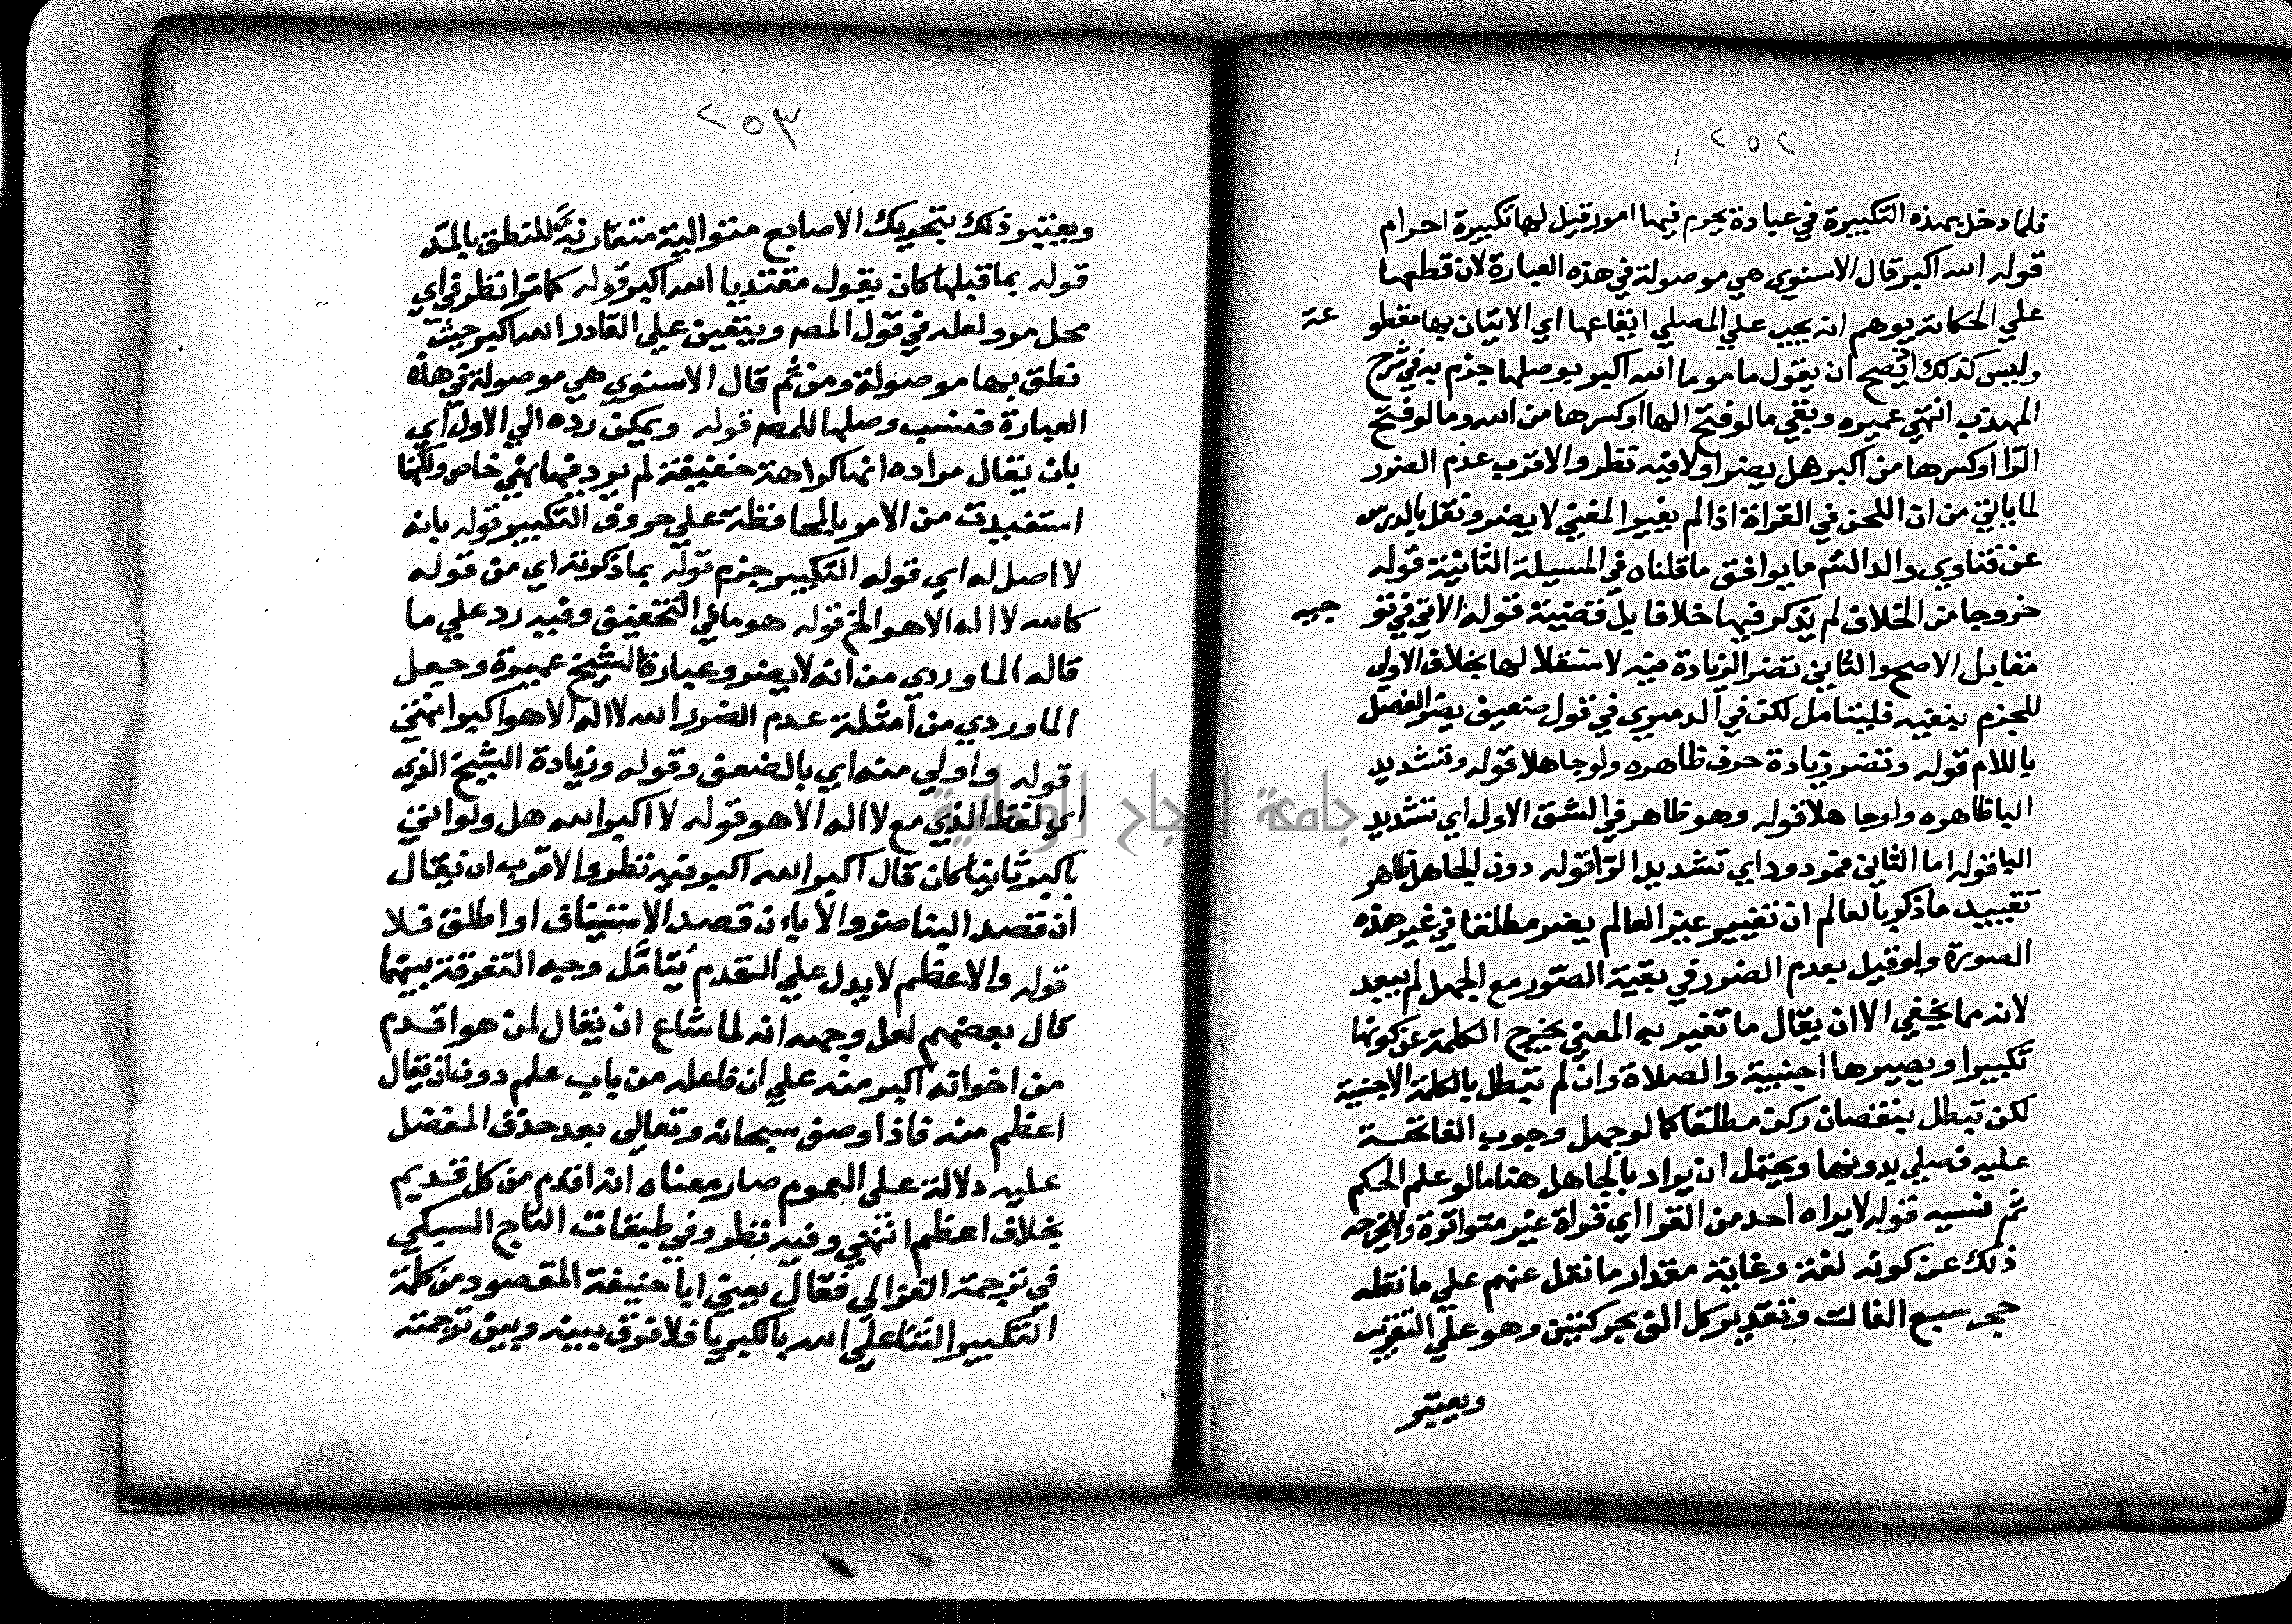 ٢٥٢
فلما دخل بهذه التكبيرة في عبادة يحرم فيها امور قيل لها تكبيرة احرام
قوله الله اكبر قال الاسنوي هي موصولة في هذه العبارة لان قطعها
علي الحكاية يوهم انه يجب علي المصلي ايقاعها اي الاتيان بها مقطو عة
وليس كذلك اذ يصح ان يقول ماموما الله اكبر بوصلها جزم به في شرح
المهذب انتهي عميره وبقي ما لو فتح الها او كسرها من الله وما لو فتح
الرا او كسرها من اكبر هل يضر او لا فيه نظر والاقرب عدم الضرر
لما ياتي من ان اللحن في القراة اذا لم يغير المعني لا يضر ونقل بالدرس
عن فتاوي والد الشم ما يوافق ما قلناه في المسيلة الثانية قوله
خروجا من الخلاف لم يذكر فيها خلافا بل قضية قوله الاتي في تو جيه
مقابل الاصح والثاني تضر الزيادة فيه لاستقلالها بخلاف الاولي
للجزم بنفيه فليتامل لكن في الدميري في قول ضعيف يضر الفصل
باللام قوله وتضر زيادة حرف ظاهره ولو جاهلا قوله وتشديد
البا ظاهره ولو جاهلا قوله وهو ظاهر في الشق الاول اي تشديد
البا قوله اما الثاني فمردود اي تشديد الرا قوله دون الجاهل ظاهر
تقييد ما ذكر بالعالم ان تغيير غير العالم يضر مطلقا في غير هذه
الصورة ولو قيل بعدم الضرر في بقية الصور مع الجهل لم يبعد
لانه مما يخفي الا ان يقال ما تغير به المعني يخرج الكلمة عن كونها
تكبيرا ويصيرها اجنبية والصلاة وان لم تبطل بالكلمة الاجنبية
لكن تبطل بنقصان ركن مطلقا كما لو جهل وجوب الفاتحة
عليه فصلي بدونها ويحتمل ان يراد بالجاهل هنا ما لو علم الحكم
ثم نسيه قوله لا يراه احد من القرا اي قراة غير متواترة ولا يخرجه
ذلك عن كونه لغة وغاية مقدار ما نقل عنهم علي ما نقله
حجر سبع الفات وتقدير كل الف بحركتين وهو علي التقريب
ويعتبر
٢٥٣
ويعتبر ذلك بتحريك الاصابع متوالية متقارنة للنطق بالمد
قوله بما قبلها كان يقول مقتديا الله اكبر قوله كما مر انظر في اي
محل مر ولعله في قول المصم ويتعين علي القادر الله اكبر حيث
نطق بها موصولة ومن ثم قال الاسنوي هي موصولة في هذه
العبارة فنسب وصلها للمصم قوله ويمكن رده الي الاول اي
بان يقال مراده انها كراهة خفيفة لم يرد فيها نهي خاص ولكنها
استفيدت من الامر بالمحافظة علي حروف التكبير قوله بانه
لا اصل له اي قوله التكبير جزم قوله بما ذكرته اي من قوله
كالله لا اله الا هو الخ قوله هو ما في التحقيق وفيه رد علي ما
قاله الماوردي من انه لا يضر وعبارة الشيخ عميرة وجعل
الماوردي من امثلة عدم الضرر الله لا اله الا هو اكبر انتهي
قوله واولي منه اي بالضعف وقوله وزيادة الشيخ الذي
اي لفظ الذي مع لا اله الا هو قوله لا اكبر الله هل ولو اتي
باكبر ثانيا كان قال اكبر الله اكبر فيه نظر والاقرب ان يقال
ان قصد البنا ضر والا بان قصد الاستيناف او اطلق فلا
قوله والاعظم لا يدل علي التقدم يتامل وجه التفرقة بينهما
قال بعضهم لعل وجهه انه لما شاع ان يقال لمن هو اقدم
من اخوانه اكبر منه علي ان فاعله من باب علم دون ان يقال
اعظم منه فاذا وصف سبحانه وتعالي بعد حذف المفضل
عليه دلالة علي العموم صار معناه انه اقدم من كل قديم
بخلاف اعظم انتهي وفيه نظر وفي طبقات التاج السبكي
في ترجمة الغزالي فقال يعني ابا حنيفة المقصود من كلمة
التكبير الثنا علي الله بالكبريا فلا فرق بينه وبين ترجمته
جامعة النجاح الوطنية